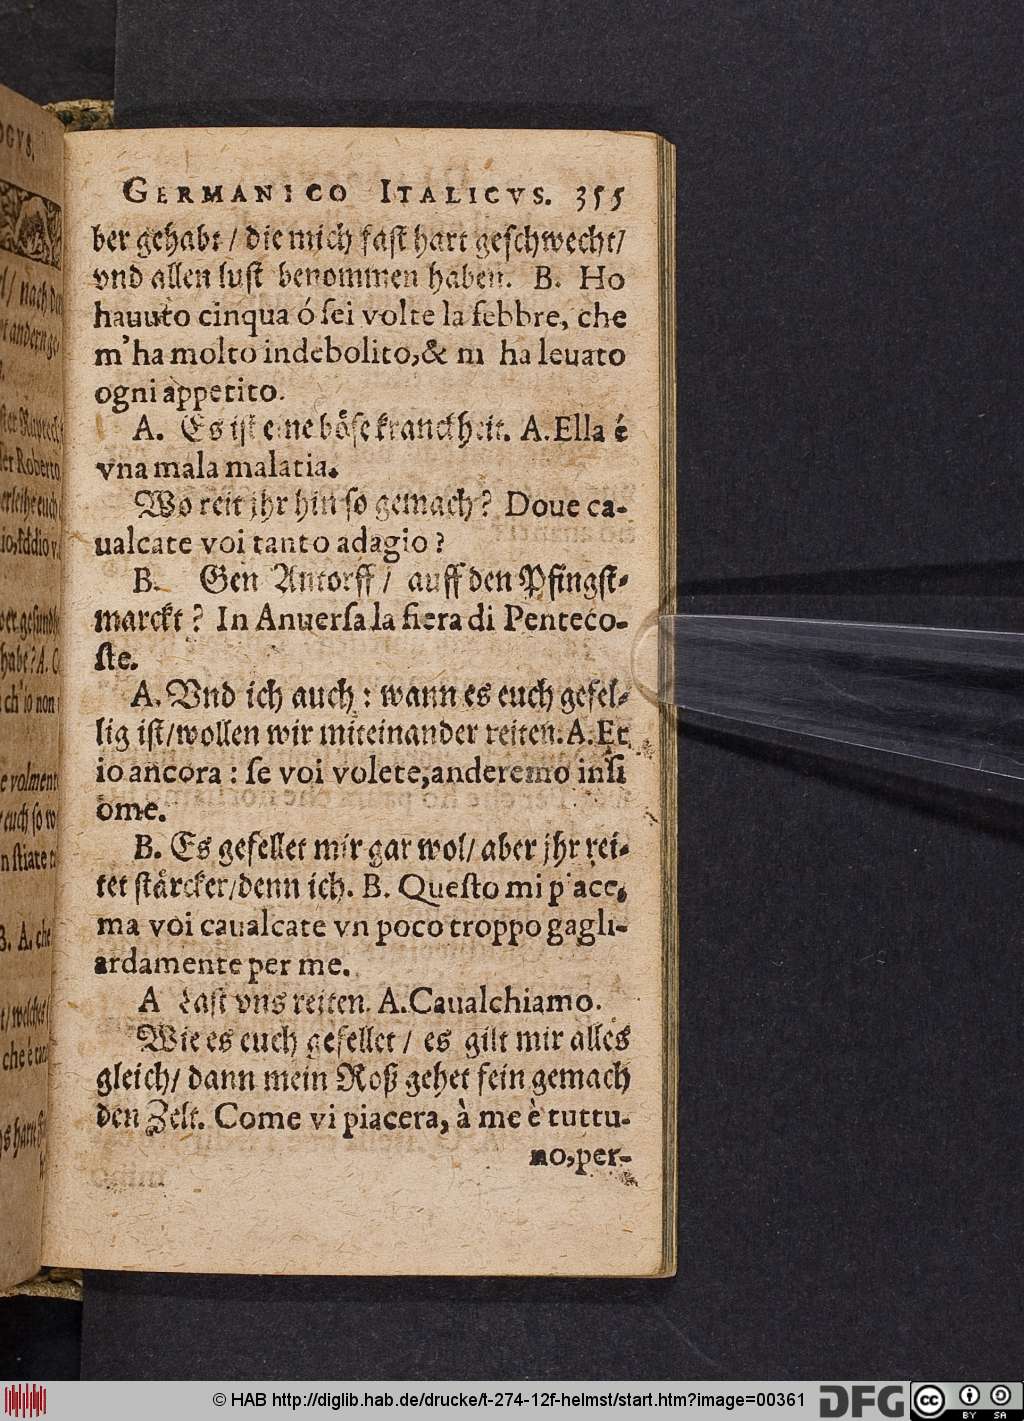 GERMANICO ITALICVS. 355
ber gehabt / die mich fast hart geschwecht/
vnd allen lust benommen haben. B. Ho
hauuto cinqua ó sei volte la febbre, che
m'ha molto indebolito,& m ha leuato
ogni appetito.
A. Es ist eine böse kranckheit. A. Ella é
vna mala malatia.
Wo reit jhr hin so gemach? Doue ca-
ualcate voi tanto adagio?
B. Gen Antorff / auff den Pfingst-
marckt? In Anuersa la fiera di Penteco-
ste.
A. Vnd ich auch: wann es euch gefel-
lig ist/wollen wir miteinander reiten. A. Et
io ancora: se voi volete,anderemo insi
ome.
B. Es gefellet mir gar wol/ aber jhr rei-
tet stårcker/denn ich. B. Questo mi piace,
ma voi caualcate vn poco troppo gagli-
ardamente per me.
A Last vns reiten. A. Caualchiamo.
Wie es euch gefellet / es gilt mir alles
gleich/ dann mein Roß gehet fein gemach
den Zelt. Come vi piacera, à me è tuttu-
no,per-
© HAB http://diglib.hab.de/drucke/t-274-12f-helmst/start.htm?image=00361
DFG
cc BY SA